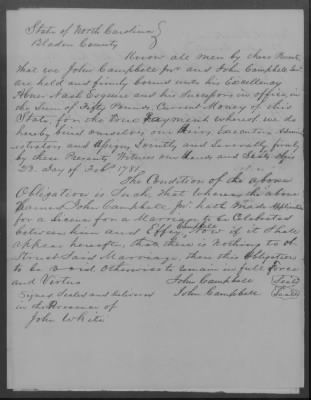 State of North Carolina
Bladen County
Know all men by these Presents
that we John Campbell Jnr and John Campbell Snr
are held and firmly bound unto his Excellency
Abner Nash Esquire and his Successors in office, in
the Sum of Fifty Pounds, Current Money of this
State, for the True Payment whereof we do
hereby bind ourselves, our Heirs, Executors Admin
istrators and Assigns Jointly and Severally firmly
by these Presents Witness our Hands and Seals this
23 day of Feby 1781
The Condition of the above
Obligation is Such, that whereas the above
Named John Campbell Jnr hath Made Application
for a License for a Marriage to be Celebrated
between him and Effey Campbell Now if it Shall
appear hereafter, that there is nothing to ob
struct Said Marriage, then this Obligation
to be void otherwise to remain in full Force
and Virtue
John Campbell (Seal)
Signed Sealed and delivered
John Campbell (Seal)
in the Presence of
John White